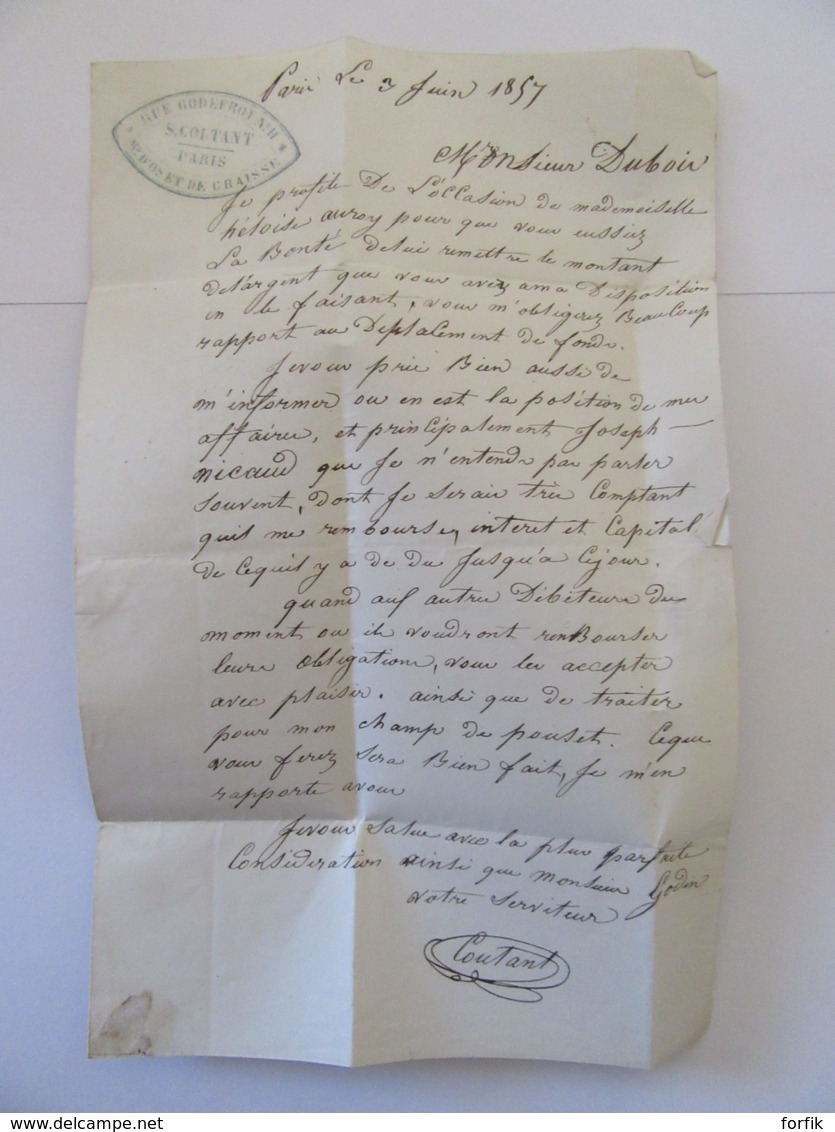 Paris Le 3 Juin 1857
RUE GODEFROY N° 11
S. COUTANT
PARIS
Md D'OS ET DE GRAISSE
Monsieur Dubois
Je profite De L'occasion de mademoiselle
héloise auroy pour que vous eussiez
La Bonté delui remettre le montant
delargent que vous avez ama Disposition
en le faisant, vous m'obligerez Beaucoup
rapport au Déplacement de fonds.
Jevous prie Bien aussi de
m'informer ou en est la position de mes
affaires, et principalement Joseph
nicaud que Je n'entends pas parler
souvent, Dont Je serais très Comptant
quil me rembourse, interet et Capital
de Cequil y a de Du Jusqu'a Cejour.
quand aux autres Débiteurs du
moment ou ils voudront remBourser
leurs obligations, vous les accepter
avec plaisir. ainsi que de traiter
pour mon champ de pouset. Ceque
vous ferez sera Bien fait, Je m'en
rapporte avous
Jevous salue avec la plus parfaite
Considération ainsi que monsieur Godin
votre serviteur
Coutant
delcampe.net
forfik